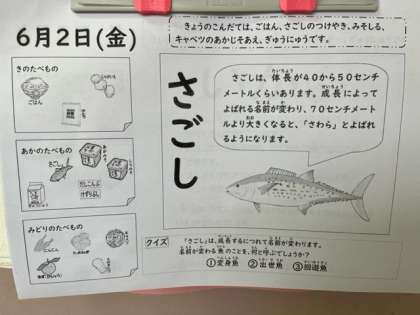 きょうのこんだては、ごはん、さごしのつけやき、みそしる、
キャベツのあかじそあえ、ぎゅうにゅうです。
6月2日(金)
きのたべもの
ごはん
じゃがいも
あかのたべもの
さごし
だしこんぶ
けずりぶし
みどりのたべもの
にんじん
さごし
さごしは、体長が40から50センチ
メートルくらいあります。成長によって
よばれる名前が変わり、70センチメート
ルより大きくなると、「さわら」とよばれ
るようになります。
クイズ
「さごし」は、成長するにつれて名前が変わります。
名前が変わる魚のことを、何と呼でしょうか?
①変身魚 ②出世魚 ③回遊魚